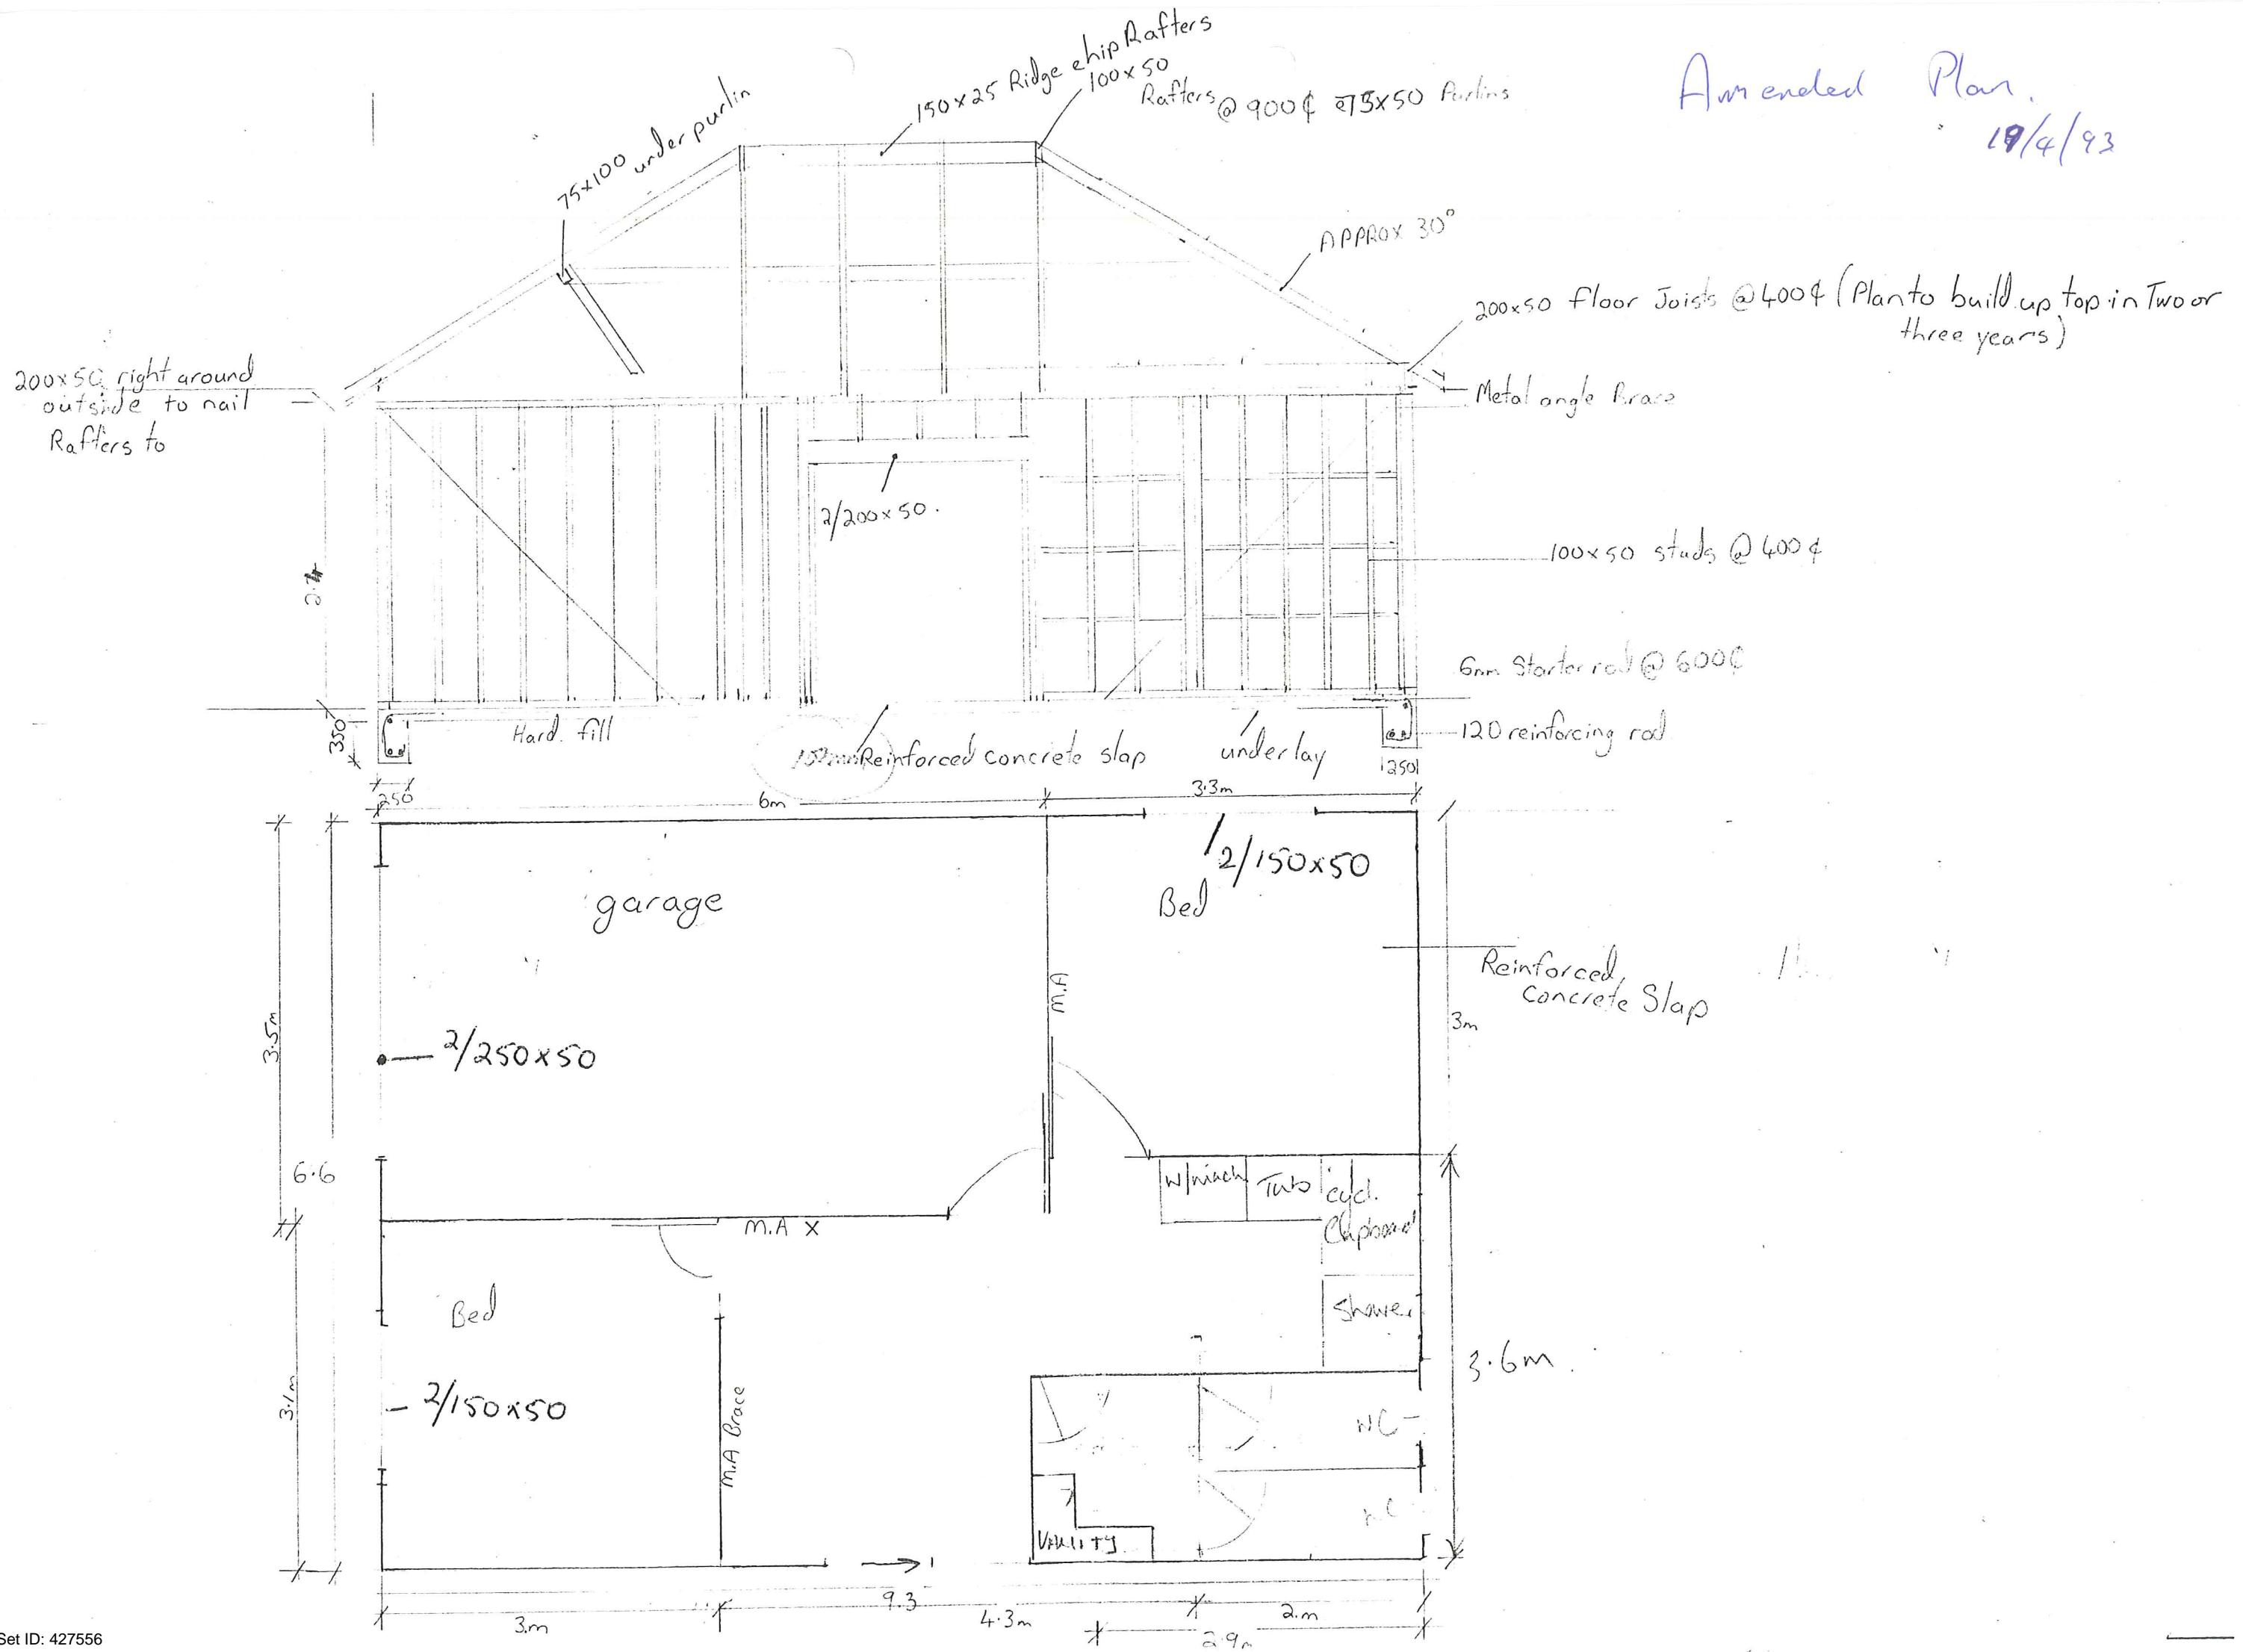 Amended Plan.
19/4/93
150x25 Ridge & hip Rafters
100x50
Rafters @ 900¢ 75x50 Purlins
75x100 under purlin
APPROX 30°
200x50 floor Joists @ 400¢ (Plan to build up top in Two or
three years)
200x50 right around
outside to nail
Rafters to
Metal angle Brace
2/200x50.
100x50 studs @ 400¢
2.4
6mm Starter rod @ 600¢
350
Hard fill
Reinforced concrete slap
underlay
120 reinforcing rod
250
250
6m
3.3m
2/150x50
garage
Bed
Reinforced
Concrete Slap
M.A
3.5m
3m
2/250x50
6.6
W/mach
Tub
cyl.
Cupboard
M.A X
Bed
Shower
3.6m.
3.1m
2/150x50
M.A Brace
WC
VANITY
9.3
3.m
4.3m
2.m
2.9m
Set ID: 427556